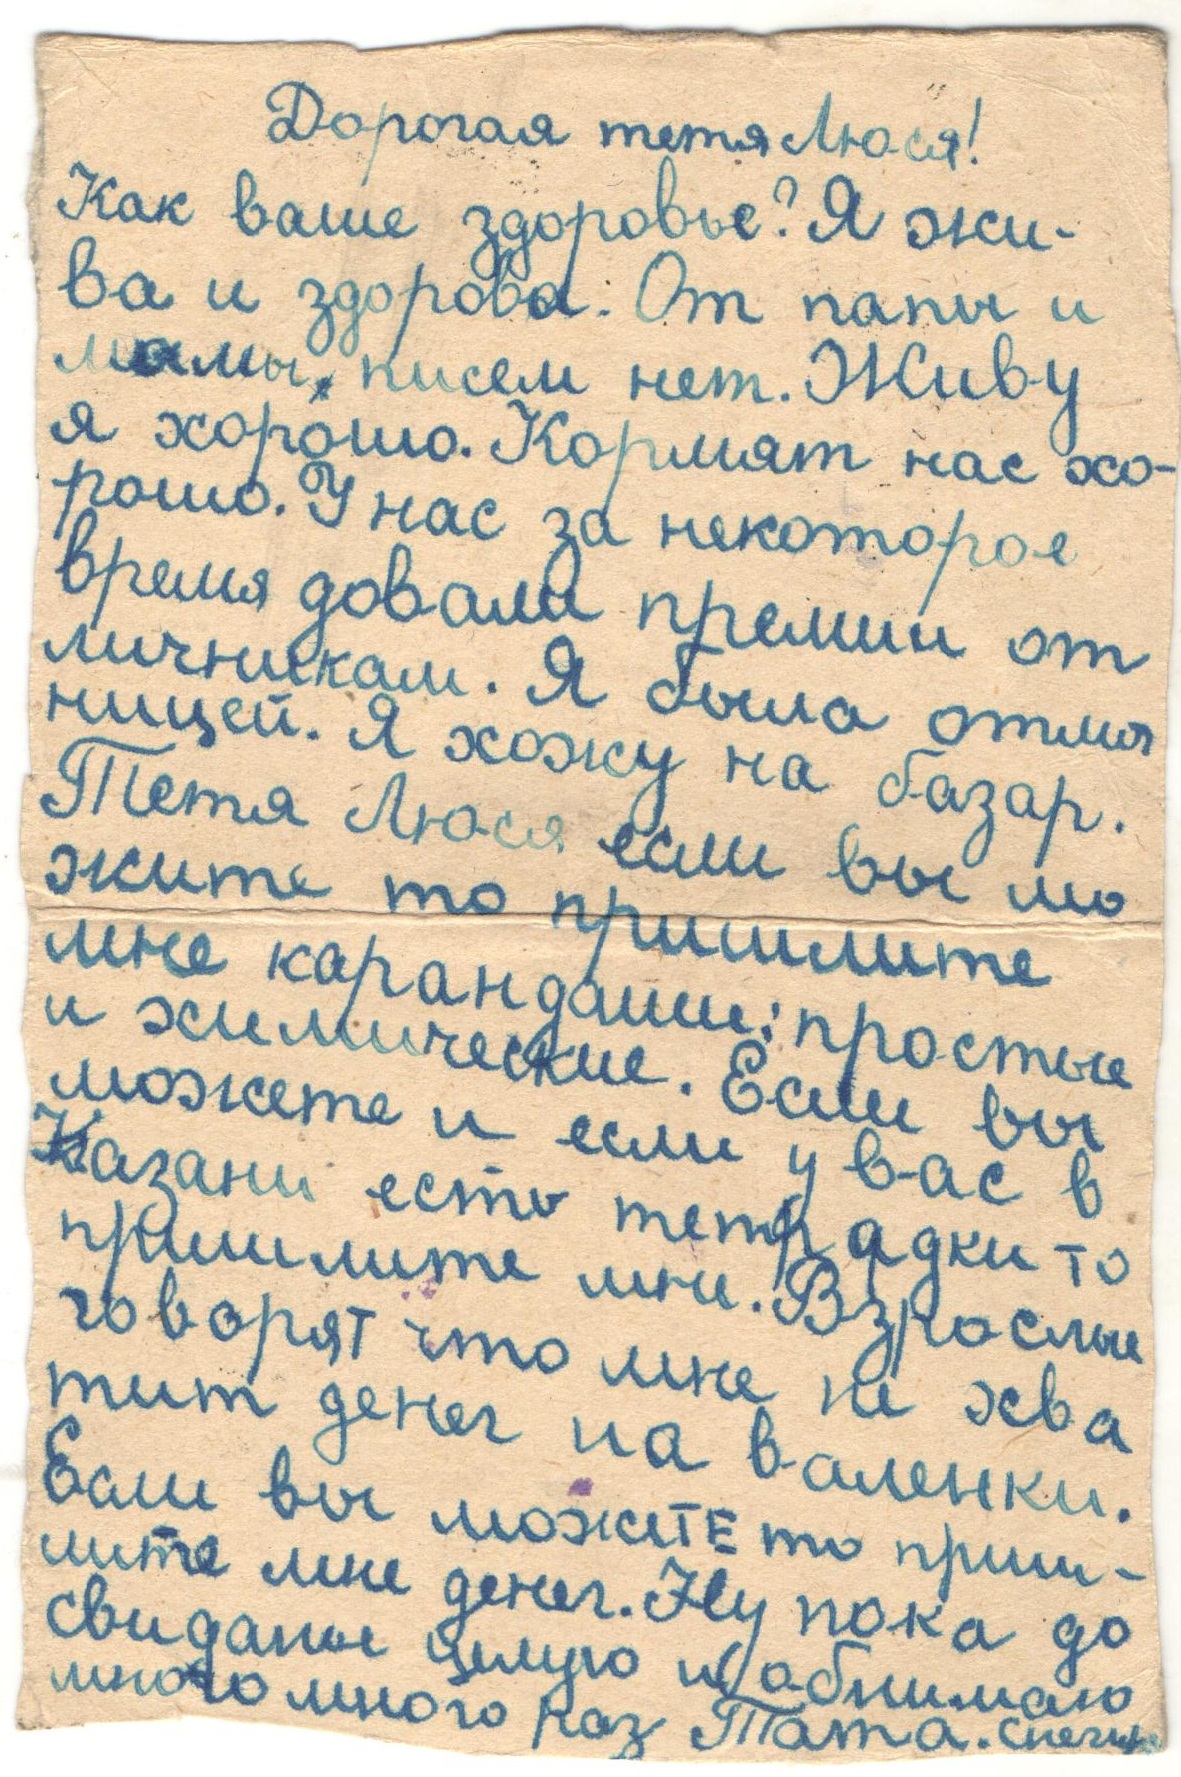 Дорогая тетя Люся!
Как ваше здоровье? Я жи-
ва и здорова. От папы и
мамы, писем нет. Живу
я хорошо. Кормят нас хо-
рошо. У нас за некоторое
время довали премии от
личникам. Я была отлич
ницей. Я хожу на базар.
Тетя Люся если вы мо
жите то пришлите
мне карандаши: простые
и химические. Если вы
можете и если у вас в
Казани есть тетрадки то
пришлите мне. Взрослые
говорят что мне не хва
тит денег на валенки.
Если вы можитЕ то приш-
лите мне денег. Ну пока до
свиданье целую и обнимаю
много много раз Тата.